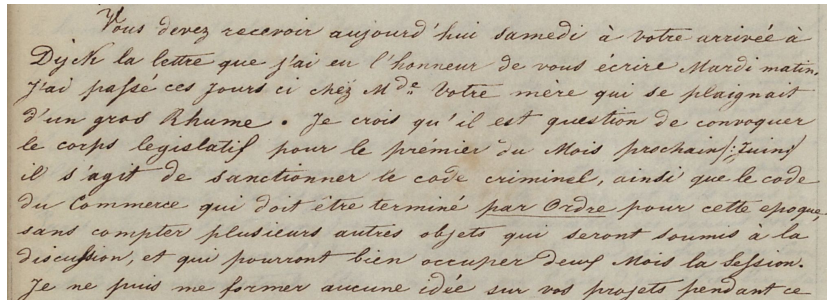 Vous devez recevoir aujourd'hui samedi à votre arrivée à
Dijck la lettre que j'ai eu l'honneur de vous écrire Mardi matin.
J'ai passé ces Jours ci chez Mde. Votre mère qui se plaignait
d'un gros Rhume. Je crois qu'il est question de convoquer
le corps legislatif pour le prémier du Mois prochain /: Juin /
il s'agit de sanctionner le code criminel, ainsi que le code
du Commerce qui doit être terminé par Ordre pour cette epoque,
sans compter plusieurs autres objets qui seront soumis à la
discussion, et qui pourront bien occuper deux Mois la session.
Je ne puis me former aucune idée sur vos projets pendant ce